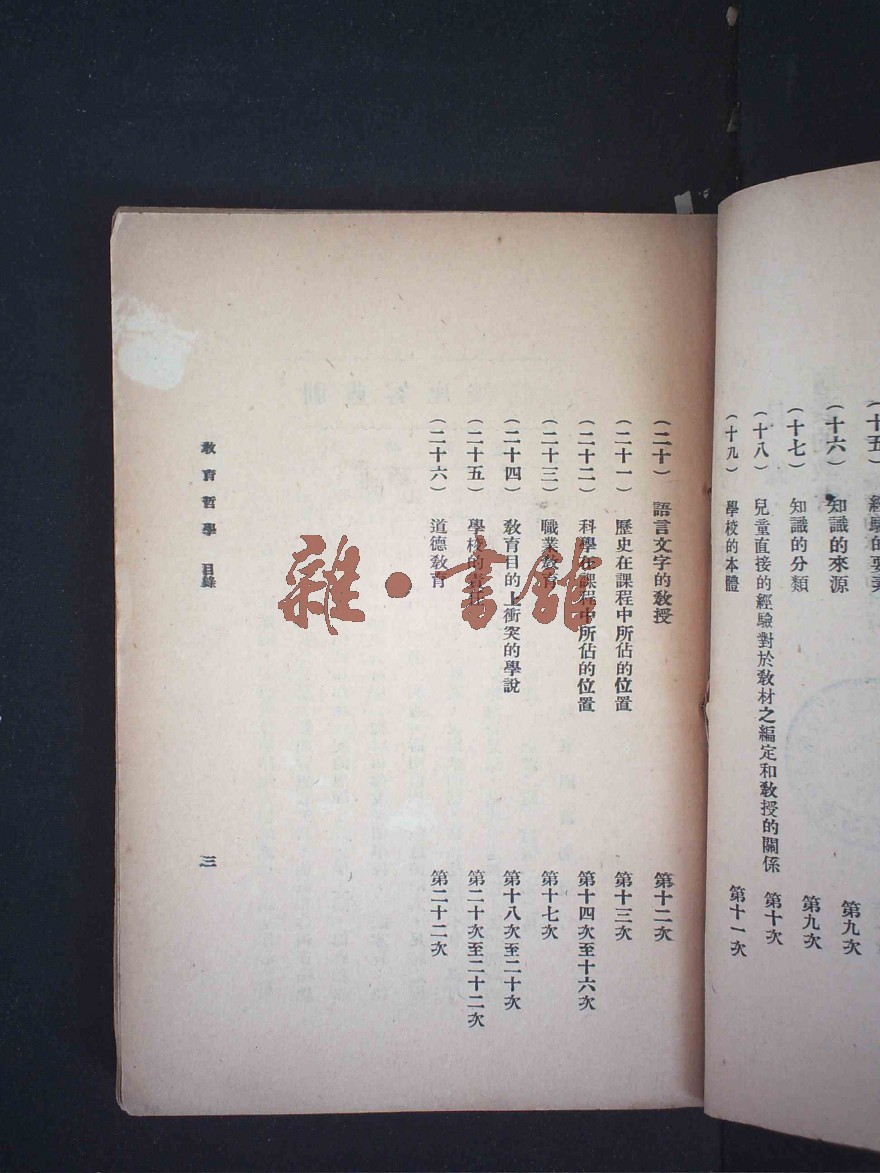 （十五） 經驗的要素
（十六） 知識的來源 第九次
（十七） 知識的分類 第九次
（十八） 兒童直接的經驗對於敎材之編定和敎授的關係 第十次
（十九） 學校的本體 第十一次
（二十） 語言文字的敎授 第十二次
（二十一） 歷史在課程中所佔的位置 第十三次
（二十二） 科學在課程中所佔的位置 第十四次至十六次
（二十三） 職業敎育 第十七次
（二十四） 敎育目的上衝突的學說 第十八次至二十次
（二十五） 學校的責任 第二十次至二十二次
（二十六） 道德敎育 第二十二次
敎育哲學 目錄
三
雜·書館